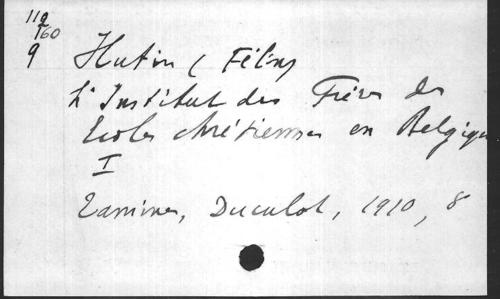 119
160
9
Hutin ( Félix)
L'Institut des Frères des
Ecoles chrétiennes en Belgique
I
Tamines, Duculot, 1910, 8